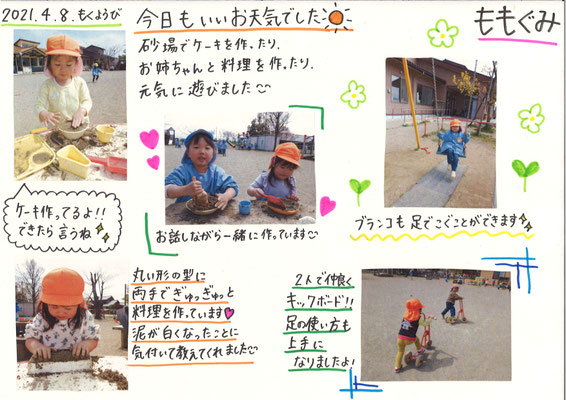 2021.4.8.もくようび
今日もいいお天気でした
ももぐみ
砂場でケーキを作ったり、
お姉ちゃんと料理を作ったり、
元気に遊びました
ケーキ作ってるよ!!
できたら言うね
お話しながら一緒に作っています
ブランコも足でこぐことができます
丸い形の型に
両手でぎゅっぎゅっと
料理を作っています
泥が白くなったことに
気付いて教えてくれました
2人で仲良く
キックボード!!
足の使い方も
上手に
なりましたよ!